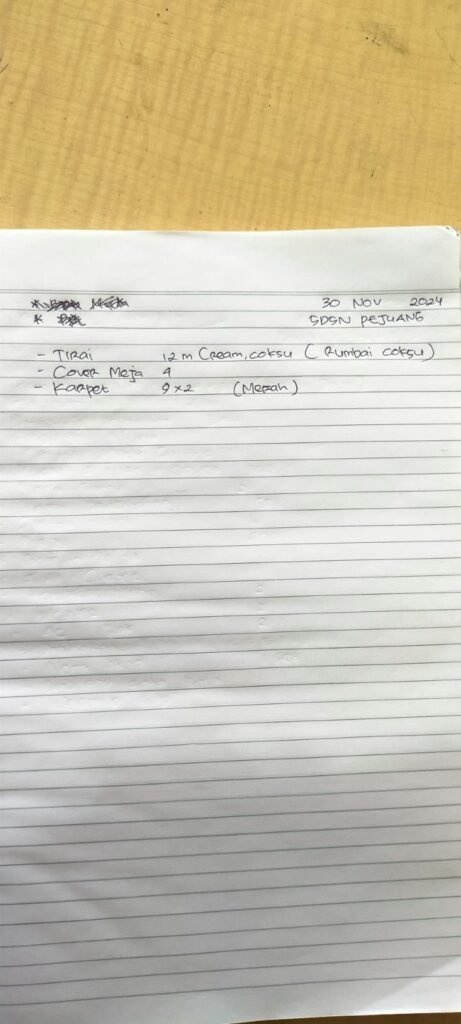 30 NOV 2024
SDSN PEJUANG
- TIRai 12 m CReam, coksu ( Rumbai coksu)
- Cover Meja 4
- KaRpet 9 x 2 (Merah)